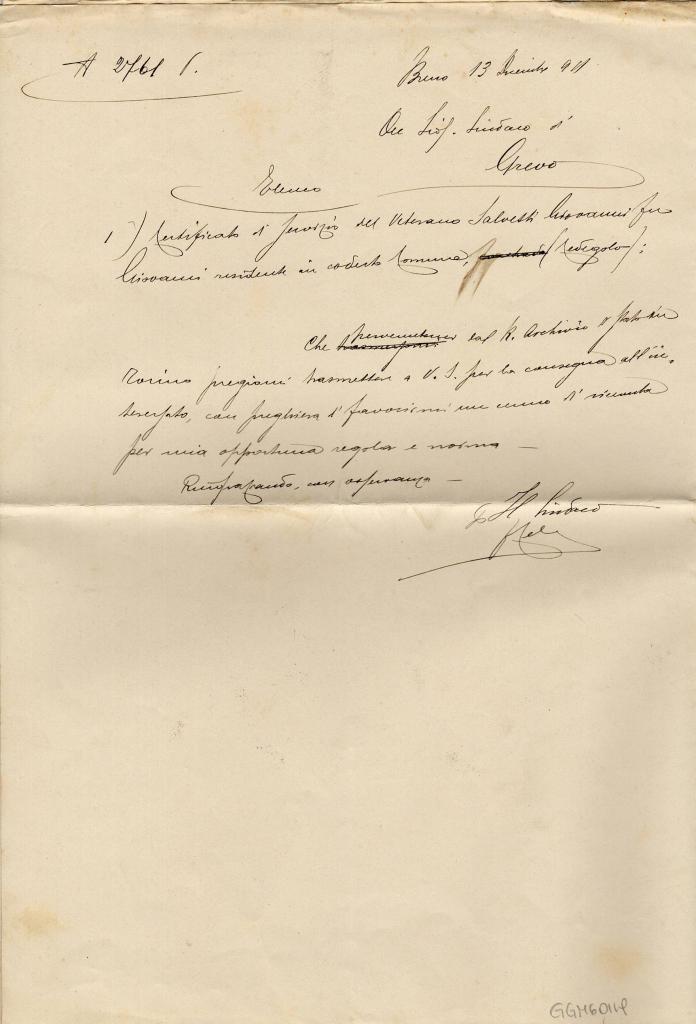 A 2761 S.
Breno 13 Dicembre 911
On. Sig. Sindaco di
Grevo
Elenco
1) Certificato di servizio del Veterano Salvetti Giovanni fu
Giovanni residente in codesto Comune, (Cedegolo):
Che pervenutomi dal R. Archivio di Stato in
Torino pregiomi trasmettere a V. S. per la consegna all'in-
teressato, con preghiera di favorirmi un cenno di ricevuta
per mia opportuna regola e norma —
Ringraziando, con osservanza —
Il Sindaco